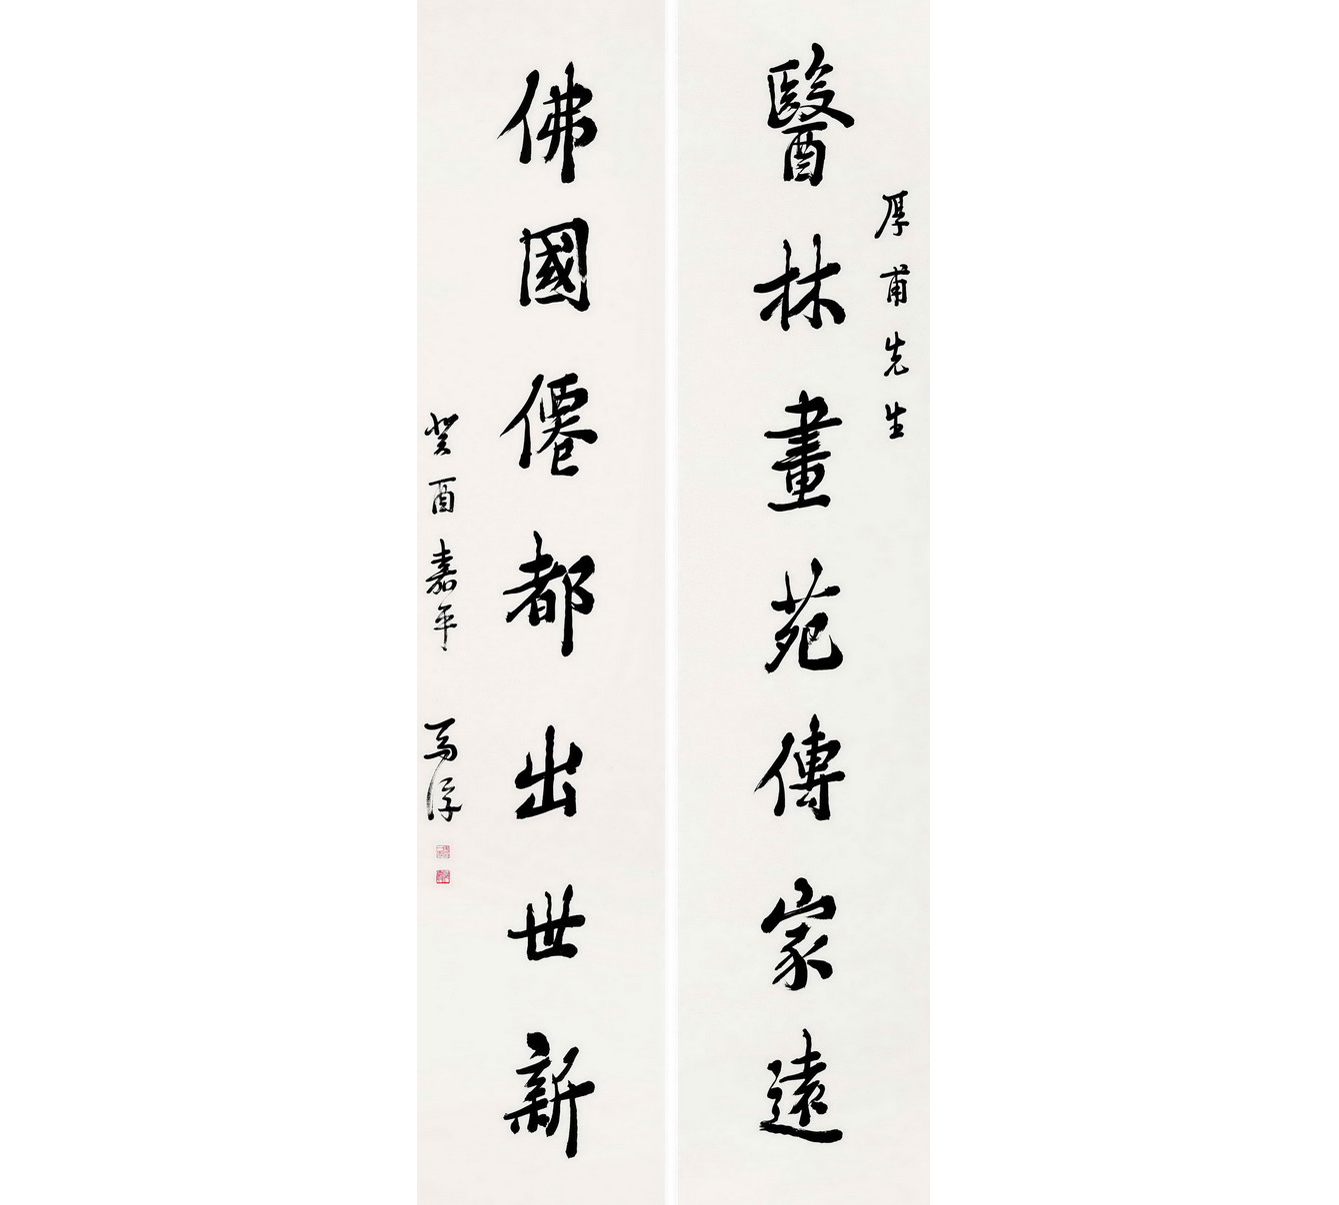 厚甫先生
醫林畫苑傳家遠
佛國僊都出世新
癸酉嘉平
馬浮